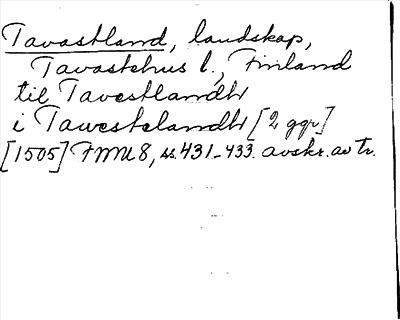 Tavastland, landskap,
Tavastehus l., Finland
til Tavestlandh
i Tawestelandh [2 ggr]
[1505] FMU 8, ss. 431-433. avskr. av tr.